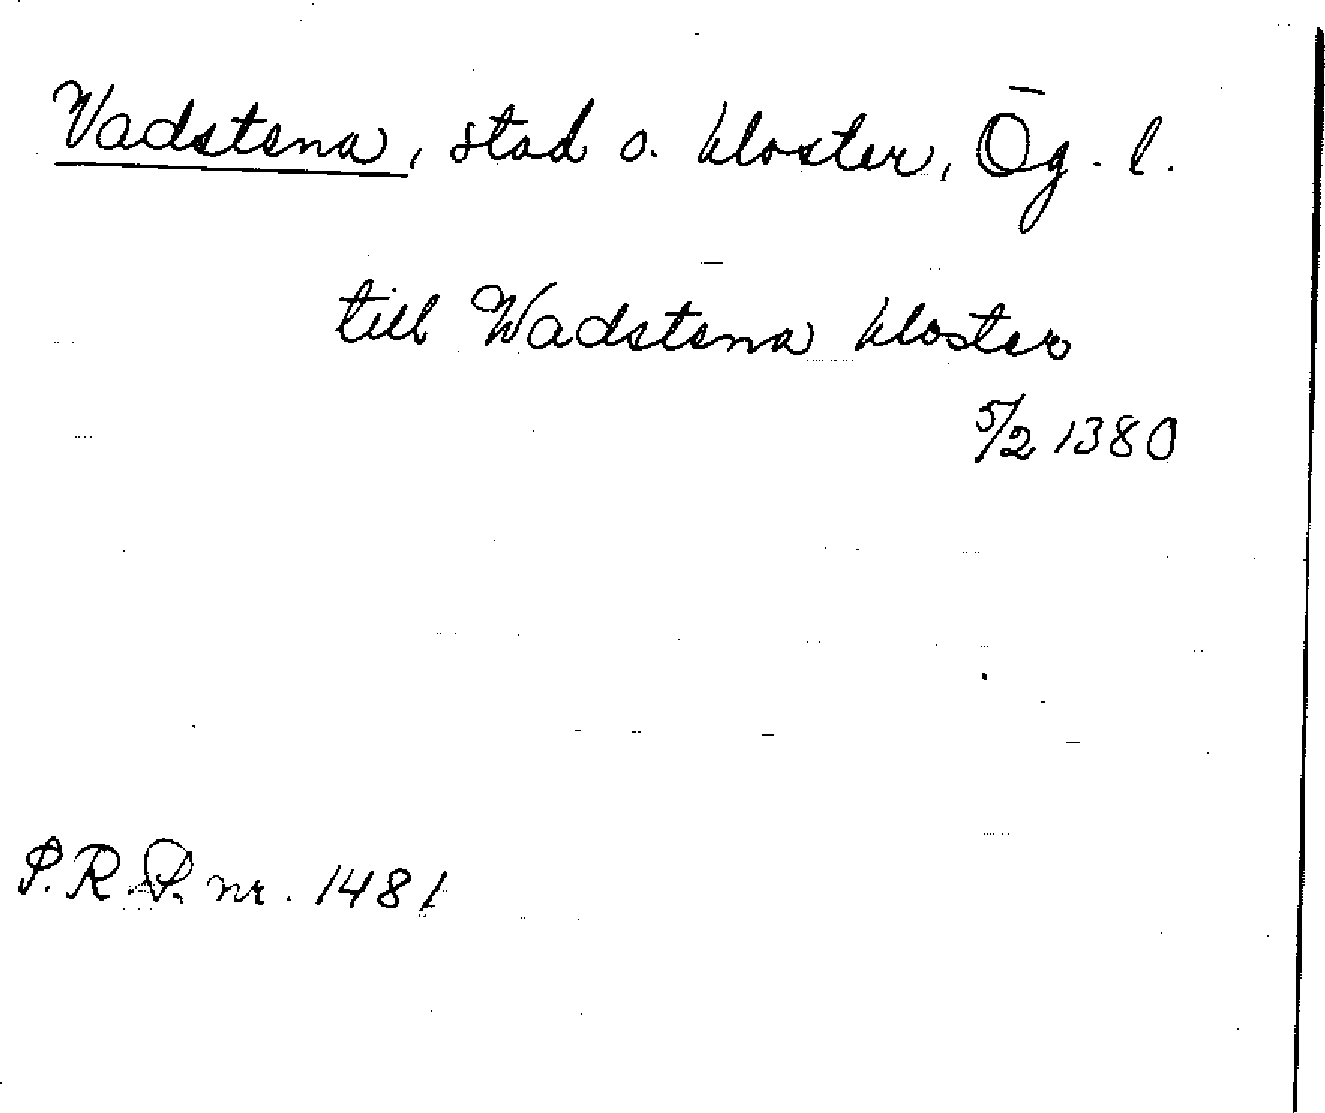 Vadstena, stad o. kloster, Ög. l.
till Wadstena kloster
5/2 1380
P.R.P. nr. 1481